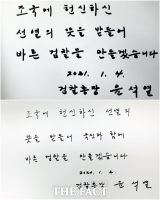 조국에 헌신하신
선열의 뜻을 받들어
바른 검찰을 만들겠습니다
2021. 1. 4.
검찰총장 윤석열
조국에 헌신하신 선열의
뜻을 받들어 국민과 함께
바른 검찰을 만들겠습니다
2020. 1. 2.
검찰총장 윤석열